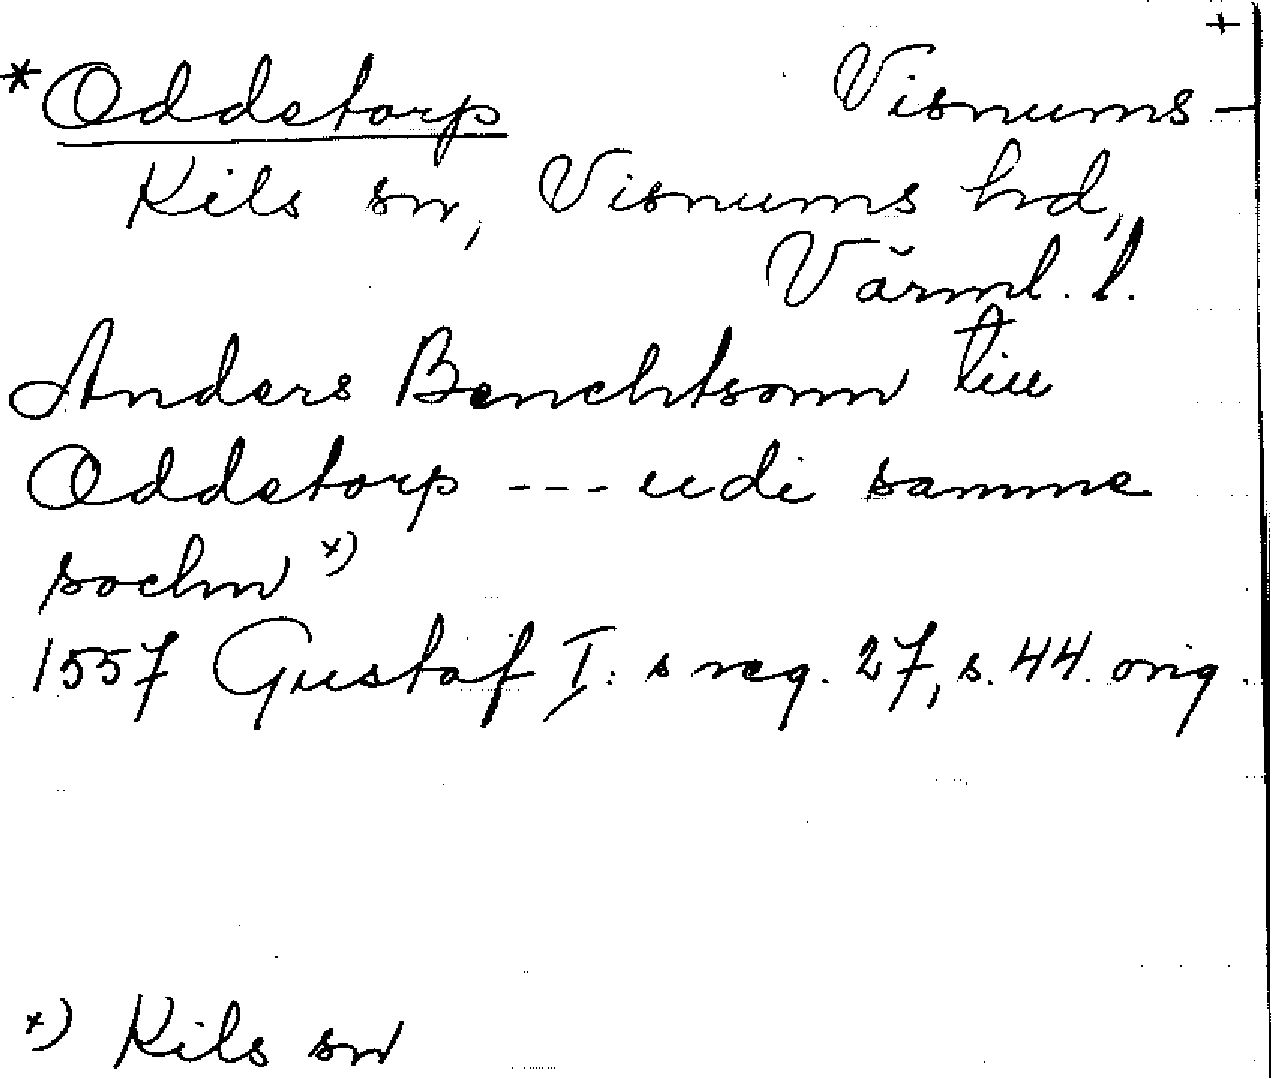 +
*Oddetorp Visnums-
Kils sn, Visnums hd,
Värml. l.
Anders Benchtsonn till
Oddetorp --- udi samme
sochn x)
1557 Gustaf I:s reg. 27, s. 44. orig.
x) Kils sn